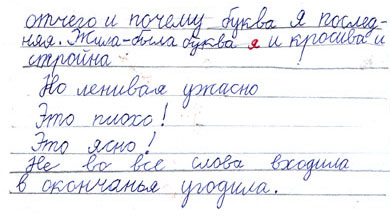 отчего и почему буква Я послед-
няя. Жила-была буква я и кросива и
стройна
Но ленивая ужасно
Это плохо!
Это ясно!
Не во все слова входила
в окончанья угодила.